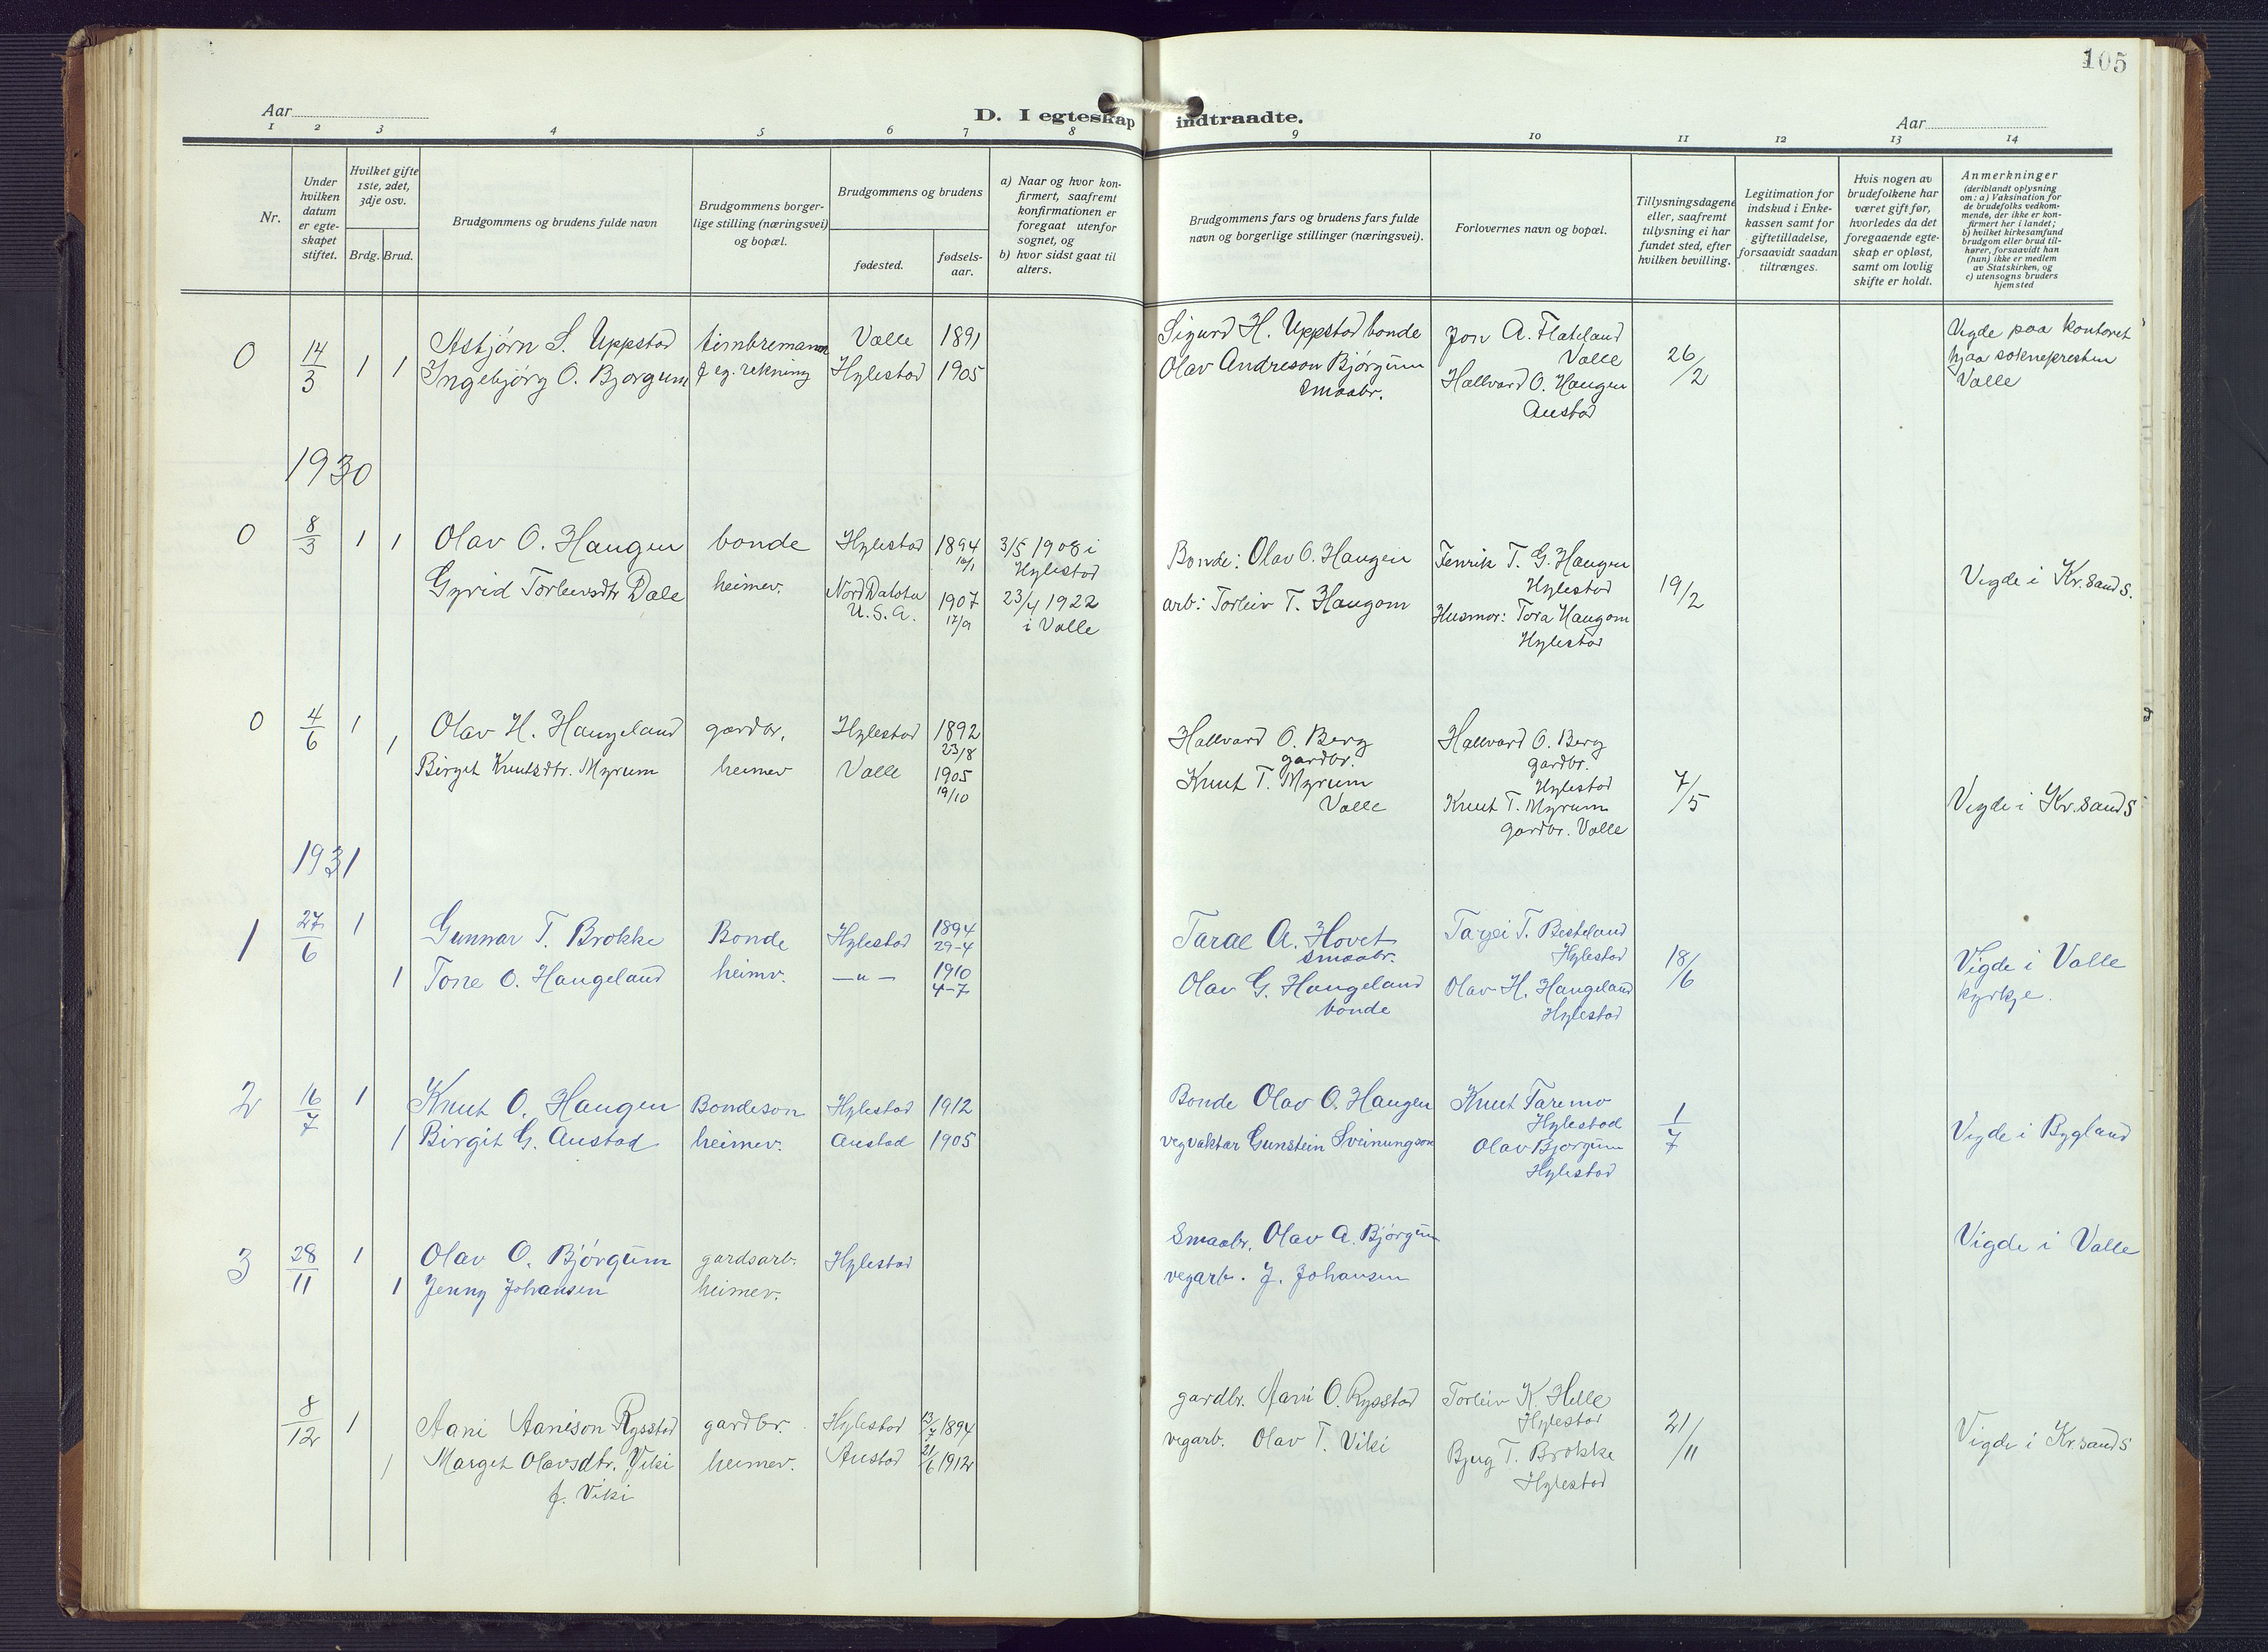 105
Aar
D. I egteskap indtraadte.
Aar
1 2 3 4 5 6 7 8 9 10 11 12 13 14
Nr.
Under
hvilken
datum
er egte-
skapet
stiftet.
Hvilket gifte
1ste, 2det,
3dje osv.
Brdg. Brud.
Brudgommens og brudens fulde navn
Brudgommens borger-
lige stilling (næringsvei)
og bopæl.
Brudgommens og brudens
fødested.
fødsels-
aar.
a) Naar og hvor kon-
firmert, saafremt
konfirmationen er
foregaat utenfor
sognet, og
b) hvor sidst gaat til
alters.
Brudgommens fars og brudens fars fulde
navn og borgerlige stillinger (næringsvei).
Forlovernes navn og bopæl.
Tillysningsdagene
eller, saafremt
tillysning ei har
fundet sted, efter
hvilken bevilling.
Legitimation for
indskud i Enke-
kassen samt for
giftetilladelse,
forsaavidt saadan
tiltrænges.
Hvis nogen av
brudefolkene har
været gift før,
hvorledes da det
foregaaende egte-
skap er opløst,
samt om lovlig
skifte er holdt.
Anmerkninger
(deriblandt oplysning
om: a) Vaksination for
de brudefolks vedkom-
mende, der ikke er kon-
firmert her i landet;
b) hvilket kirkesamfund
brudgom eller brud til-
hører, forsaavidt han
(hun) ikke er medlem
av Statskirken, og
c) utensogns bruders
hjemsted
0 14/3 1 1 Asbjørn S. Uppstad timbremann Valle 1891
Ingebjørg O. Bjørgum f eg. rekning Hylestad 1905
Sigurd H. Uppstad bonde
Olav Andreson Bjørgum
smaabr.
Jon A. Flateland
Valle
Hallvard O. Haugen
Austad
26/2
Vigde paa kontoret
hjaa sokneprestin
Valle
1930
0 8/3 1 1 Olav O. Haugen bonde Hylestad 1894
16/1
3/5 1908 i
Hylestad
Gyrid Torleivsdtr Dale heimev. Nord Dakota
U.S.A.
1907
17/9
23/4 1922
i Valle
Bonde: Olav O. Haugen
arb: Torleiv T. Haugom
Fenrik T. G. Haugen
Hylestad
Husmor: Tora Haugom
Hylestad
19/2
Vigde i Kr.sand S.
0 4/6 1 Olav H. Haugeland gardbr. Hylestad 1892
23/8
1 Birgit Knutsdtr. Myrum heimev Valle 1905
19/10
Hallvard O. Berg
gardbr.
Knut T. Myrum
Valle
Hallvard O. Berg
gardbr.
Hylestad
Knut T. Myrum
gardbr. Valle
7/5
Vigde i Kr.sand S
1931
1 27/6 1 Gunnar T. Brokke Bonde Hylestad 1894
29-4
1 Tone O. Haugeland heimv. —"— 1910
4-7
Taral A. Hovet
smaabr.
Olav G. Haugeland
bonde
Targei T. Besteland
Hylestad
Olav H. Haugeland
Hylestad
18/6
Vigde i Valle
kyrkje.
2 16/7 1 Knut O. Haugen Bondeson Hylestad 1912
1 Birgit G. Austad heimev. Austad 1905
Bonde Olav O. Haugen
vegvaktar Gunstein Sveinungson
Knut Taremo
Hylestad
Olav Bjørgum
Hylestad
1/7
Vigde i Bygland
3 28/11 1 Olav O. Bjørgum gardsarb. Hylestad
1 Jenny Johansen heimev.
Smaabr. Olav A. Bjørgum
vegarb. J. Johansen
Vigde i Valle
8/12 1 Aani Aanison Rysstad gardbr. Hylestad 13/7 1894
1 Margit Olavsdtr. Viki heimev. Austad 21/6 1912
f. Viki
gardbr. Aani O. Rysstad
vegarb. Olav T. Viki
Torleiv K. Helle
Hylestad
Bjug T. Brokke
Hylestad
21/11
Vigde i Kr.sand S